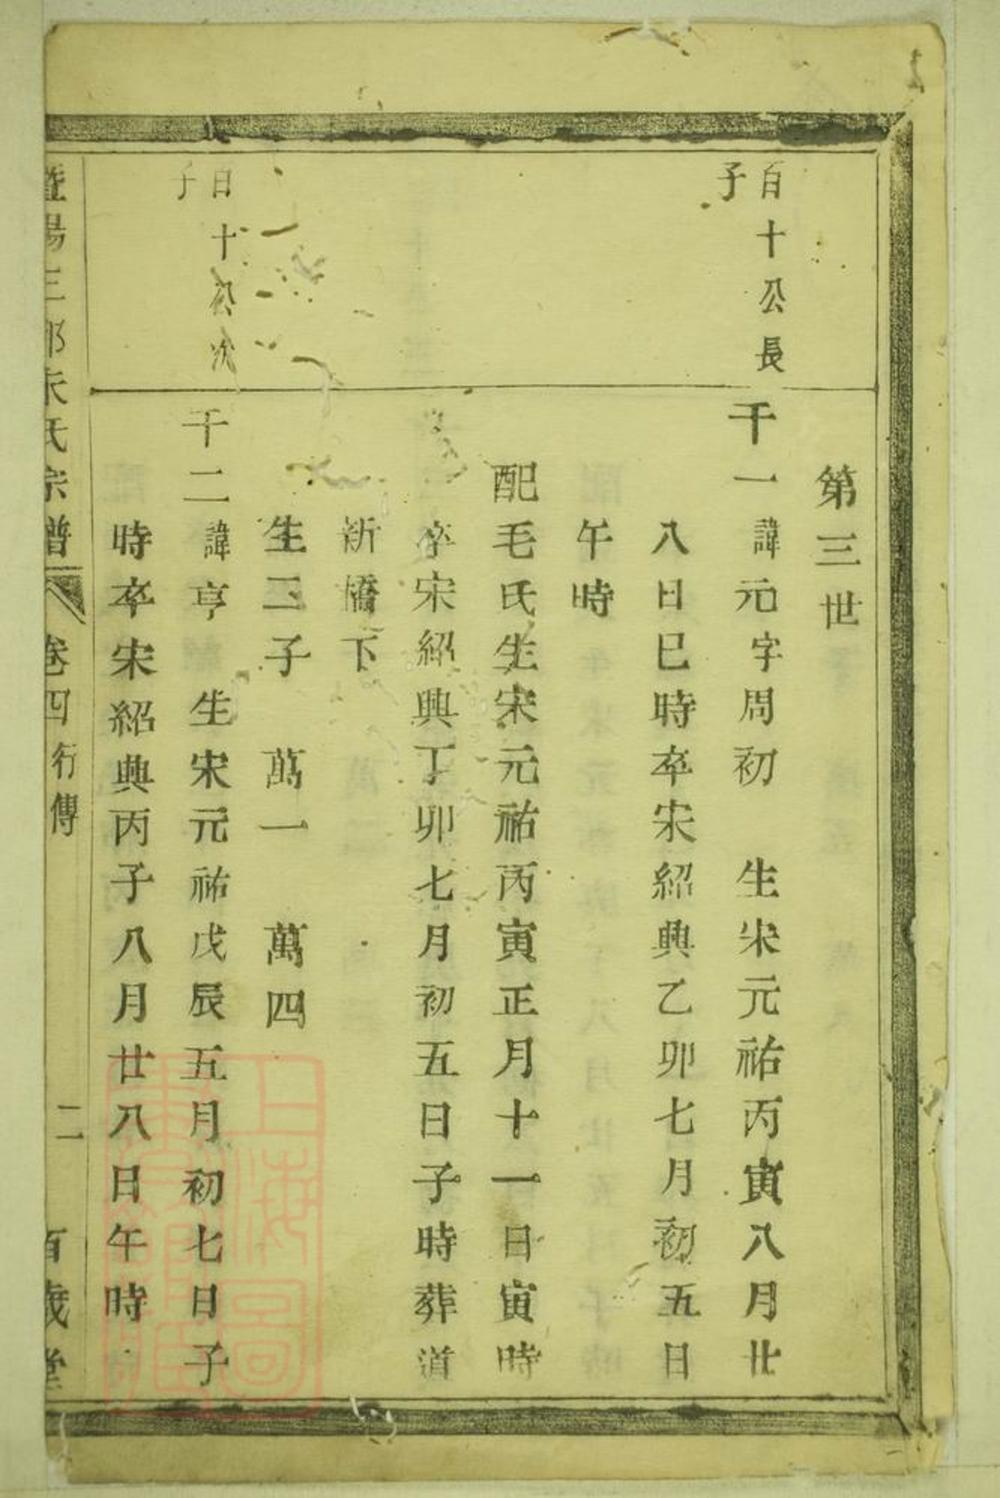 第三世
百十公長
子
千一諱元字周初 生宋元祐丙寅八月廿
八日巳時卒宋紹興乙卯七月初五日
午時
配毛氏生宋元祐丙寅正月十一日寅時
卒宋紹興丁卯七月初五日子時葬道
新橋下
生二子 萬一 萬四
百十公次
子
千二諱亨 生宋元祐戊辰五月初七日子
時卒宋紹興丙子八月廿八日午時
暨陽三郎朱氏宗譜 卷四 行傳 二 百歲堂
上海圖
書館藏